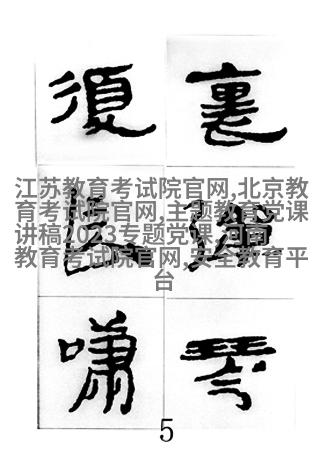 裏
琴
復長嘯
江苏教育考试院官网,北京教
育考试院官网,主题教育党课
讲稿2023专题党课,河南
教育考试院官网,安全教育平
台
5